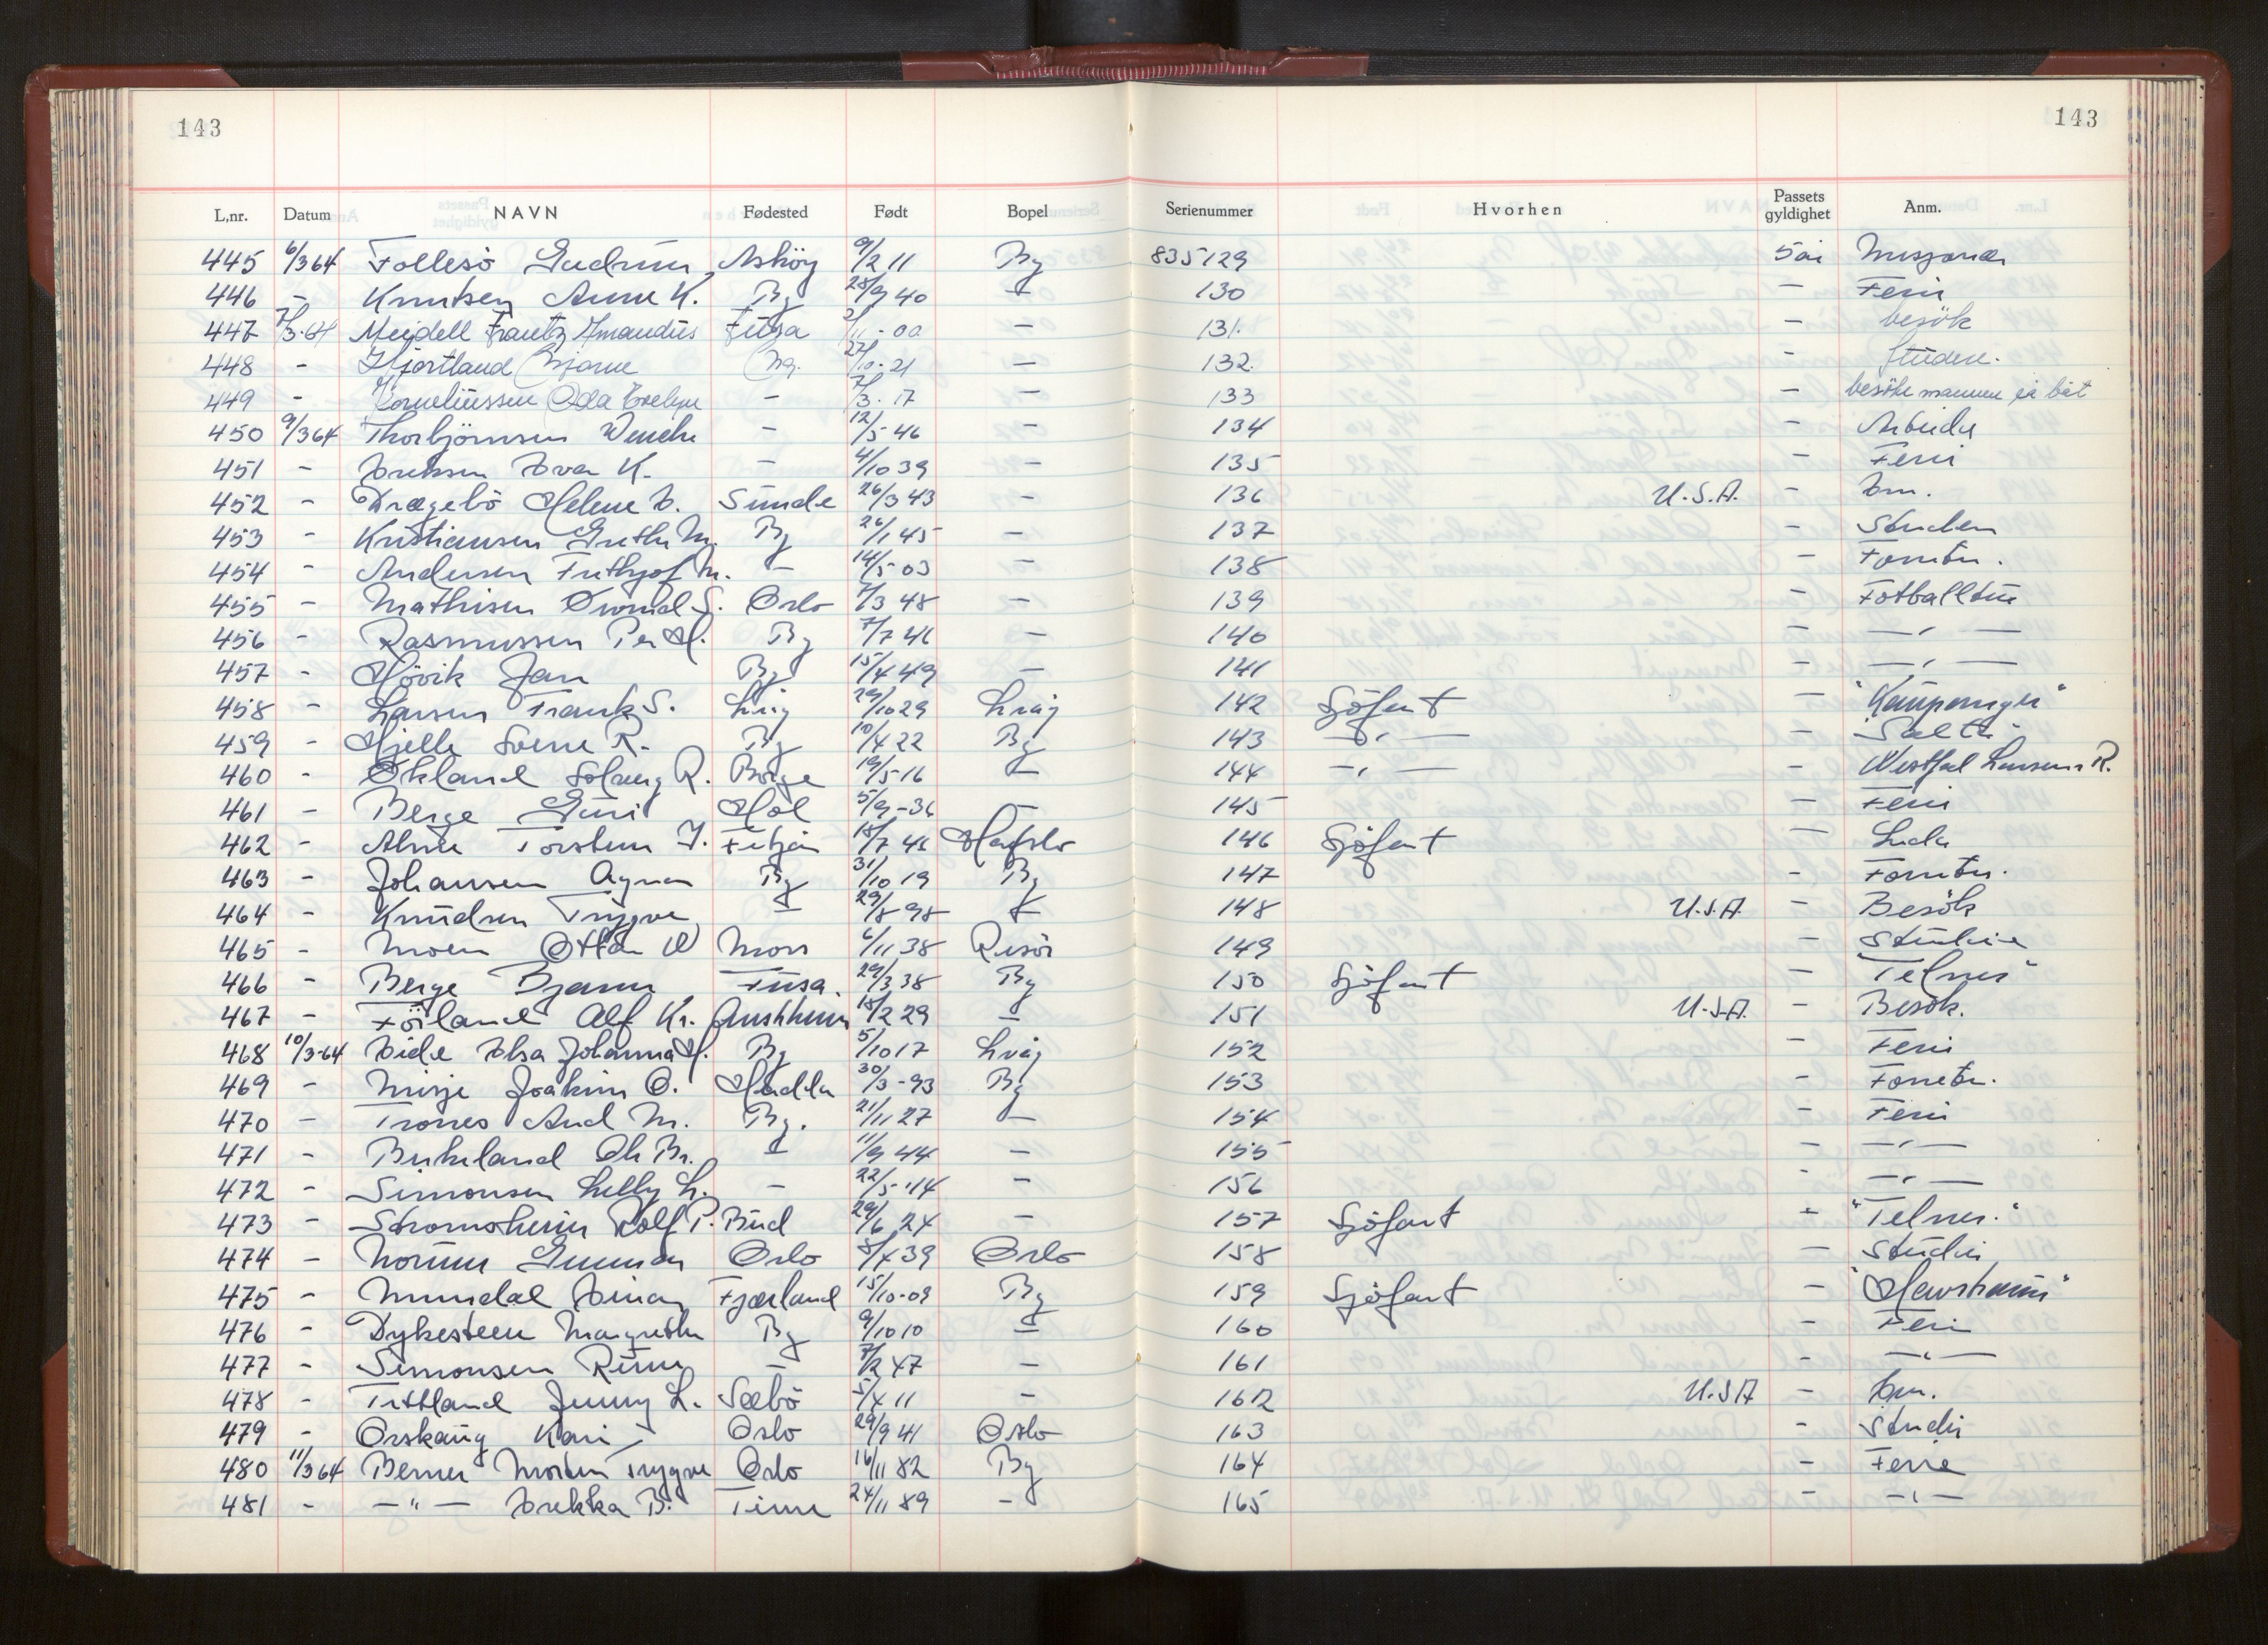 143 143
L,nr. Datum NAVN Fødested Født Bopel Serienummer Hvorhen Passets gyldighet Anm.
445 6/3 64 Follesö Gudrun Asköy 9/2 11 By 835129 5 år Misjonær
446 - Knutsen Anne K. By 28/9 40 - 130 - Ferie
447 7/3-64 Meidell Frantz Amandus Fusa 2/11-00 - 131. - besök
448 - Hjortland Bjarne Bg. 27/10-21 - 132. - studere.
449 - Corneliussen Oda Evelyn - 7/3-17 - 133 - besöke mannen på båt
450 9/3 64 Thorbjörnsen Wenche - 12/5-46 - 134 - Arbeide
451 - Eriksen Evan K. - 4/10 39 - 135 - Ferie
452 - Drægebö Helene E. Sunde 26/3 43 - 136 U.S.A. - Em.
453 - Kristiansen Grethe M. By 26/1 45 - 137 - Studen
454 - Andersen Frithjof M. - 14/5-03 - 138 - Forretn.
455 - Mathisen Øivind S. Oslo 7/3 48 - 139 - Fotballtur
456 - Rasmussen Per H. By 7/7 46 - 140 - -"-
457 - Hövik Jan By 15/4 49 - 141 - -"-
458 - Larsen Frank S. Lvåg 29/10 29 Lvåg 142 Sjöfart - "Kaupanger"
459 - Hjelle Sverre R. By 10/4 22 By 143 -"- - Salta
460 - Økland Solveig R. Borge 19/5-16 - 144 -"- - Westfal Larsens R.
461 - Berge Guri Hol 5/9-36 - 145 - Ferie
462 - Alme Torstein J. 18/7 46 Hafslo 146 Sjöfart -
463 - Johansen Agnar By 31/10 19 By 147 - Forretn.
464 - Knudsen Trygve - 29/8-98 - 148 U.S.A. - Besök
465 - Moen Ottar W Moss 6/11 38 Risör 149 - Studie
466 - Berge Bjarne Fusa. 29/3 38 By 150 Sjöfart - "Telnes"
467 - Förland Alf Kr. Austrheim 18/2 29 - 151 U.S.A. - Besök.
468 10/3-64 Eide Elsa Johanna H. By 5/10 17 Lvåg 152 - Ferie
469 - Misje Joakim O. Hadda 30/3-93 By 153 - Forretn.
470 - Trones Aud M. By. 21/11 27 - 154 - Ferie
471 - Birkeland Ole Br. - 11/9 44 - 155 - -"-
472 - Simonsen Lilly L. - 22/5-14 - 156 - -"-
473 - Stromsheim Rolf P. Bud 29/6 24 - 157 Sjöfart - "Telnes."
474 - Norum Gunnar Oslo 8/4 39 Oslo 158 - Studie
475 - Mundal Einar Fjærland 15/10-09 By 159 Sjöfart - "Havstraum"
476 - Dykesteen Margrethe By 9/10 10 - 160 - Ferie
477 - Simonsen Rune - 7/2 47 - 161 - -"-
478 - Tittland Jenny L. Sæbö 5/4 11 - 162 U.S.A - Em.
479 - Orskaug Kari Oslo 29/9 41 Oslo 163 - Studie
480 11/3 64 Berner Morten Trygve Oslo 16/11 82 By 164 - Ferie
481 - -"- Erekka B. Time 24/11 89 - 165 - -"-